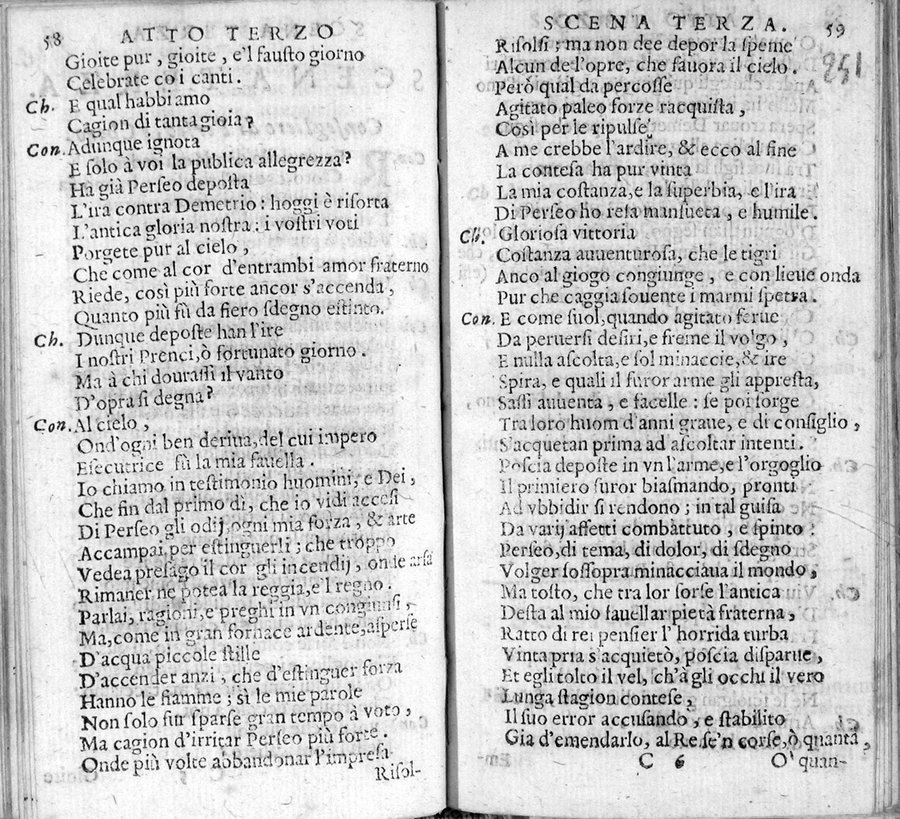 58 ATTO TERZO
Gioite pur, gioite, e'l fausto giorno
Celebrate co i canti.
Ch. E qual habbiamo
Cagion di tanta gioia?
Con. Adunque ignota
E solo à voi la publica allegrezza?
Ha già Perseo deposta
L'ira contra Demetrio: hoggi è risorta
L'antica gloria nostra: i vostri voti
Porgete pur al cielo,
Che come al cor d'entrambi amor fraterno
Riede, così più forte ancor s'accenda,
Quanto più fù da fiero sdegno estinto.
Ch. Dunque deposte han l'ire
I nostri Prenci, ò fortunato giorno.
Ma à chi dourassi il vanto
D'opra sì degna?
Con. Al cielo,
Ond'ogni ben deriua, del cui impero
Esecutrice fù la mia fauella.
Io chiamo in testimonio huomini, e Dei,
Che fin dal primo dì, che io vidi accesi
Di Perseo gli odij, ogni mia forza, & arte
Accampai, per estinguerli; che troppo
Vedea presago il cor gli incendij, onde arsa
Rimaner ne potea la reggia, e'l regno.
Parlai, ragioni, e preghi in vn congiunsi,
Ma, come in gran fornace ardente, asperse
D'acqua piccole stille
D'accender anzi, che d'estinguer forza
Hanno le fiamme; sì le mie parole
Non solo fur sparse gran tempo à voto,
Ma cagion d'irritar Perseo più forte.
Onde più volte abbandonar l'impresa
Risol-
SCENA TERZA. 59
251
Risolsi: ma non dee depor la speme
Alcun de l'opre, che fauora il cielo.
Però qual da percosse
Agitato paleo forze racquista,
Così per le ripulse
A me crebbe l'ardire, & ecco al fine
La contesa ha pur vinta
La mia costanza, e la superbia, e l'ira
Di Perseo ho resa mansueta, e humile.
Ch. Gloriosa vittoria
Costanza auuenturosa, che le tigri
Anco al giogo congiunge, e con lieue onda
Pur che caggia souente i marmi spetra.
Con. E come suol, quando agitato ferue
Da peruersi desiri, e freme il volgo,
E nulla ascolta, e sol minaccie, & ire
Spira, e quali il furor arme gli appresta,
Sassi auuenta, e facelle: se poi sorge
Tra loro huom d'anni graue, e di consiglio,
S'acquetan prima ad ascoltar intenti.
Poscia deposte in vn l'arme, e l'orgoglio
Il primiero furor biasmando, pronti
Ad vbbidir si rendono; in tal guisa
Da varij affetti combattuto, e spinto
Perseo, di tema, di dolor, di sdegno
Volger sossopra minacciaua il mondo,
Ma tosto, che tra lor forse l'antica
Desta al mio fauellar pietà fraterna,
Ratto di rei pensier l'horrida turba
Vinta pria s'acquietò, poscia disparue,
Et egli tolto il vel, ch'à gli occhi il vero
Lunga stagion contese,
Il suo error accusando, e stabilito
Gia d'emendarlo, al Re se'n corse, ò quanta,
C 6 O' quan-